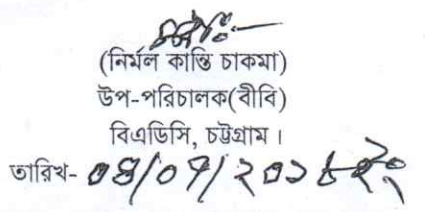 (নির্মল কান্তি চাকমা)
উপ-পরিচালক(বীবি)
বিএডিসি, চট্টগ্রাম।
তারিখ- ০৪/০৭/২০১৮